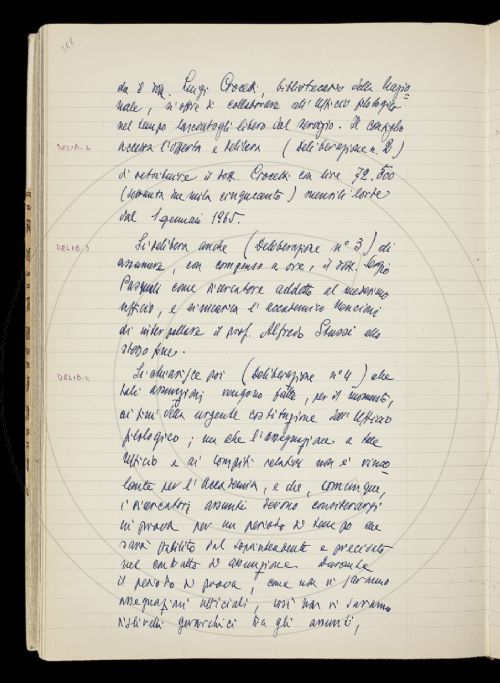 168
da il dott. Luigi Crocetti, bibliotecario della Nazio=
nale, si offre di collaborare all'Ufficio filologico
nel tempo lasciatogli libero dal servizio. Il Consiglio
accetta l'offerta e delibera (deliberazione n. 2)
DELIB. 2
di retribuire il dott. Crocetti con lire 72.500
(settanta due mila cinquecento) mensili lorde
dal 1 gennaio 1965.
DELIB. 3
Si delibera anche (deliberazione n° 3) di
assumere, con compenso a ore, il dott.
Pasquali come ricercatore addetto al medesimo
ufficio, e si incarica l'accademico Nencioni
di interpellare il prof. Alfredo Stussi allo
stesso fine.
DELIB. 4
Si chiarisce poi (deliberazione n° 4) che
tali assunzioni vengono fatte, per il momento,
ai fini della urgente costituzione dell'Ufficio
filologico; ma che l'assegnazione a tale
Ufficio e ai compiti relativi non è vinco=
lante per l'Accademia, e che, comunque,
i ricercatori assunti devono considerarsi
in prova per un periodo di tempo che
sarà stabilito dal soprintendente e precisato
nel contratto di assunzione. Durante
il periodo di prova, come non si faranno
assegnazioni ufficiali, così non si daranno
rilievi gerarchici tra gli assunti,